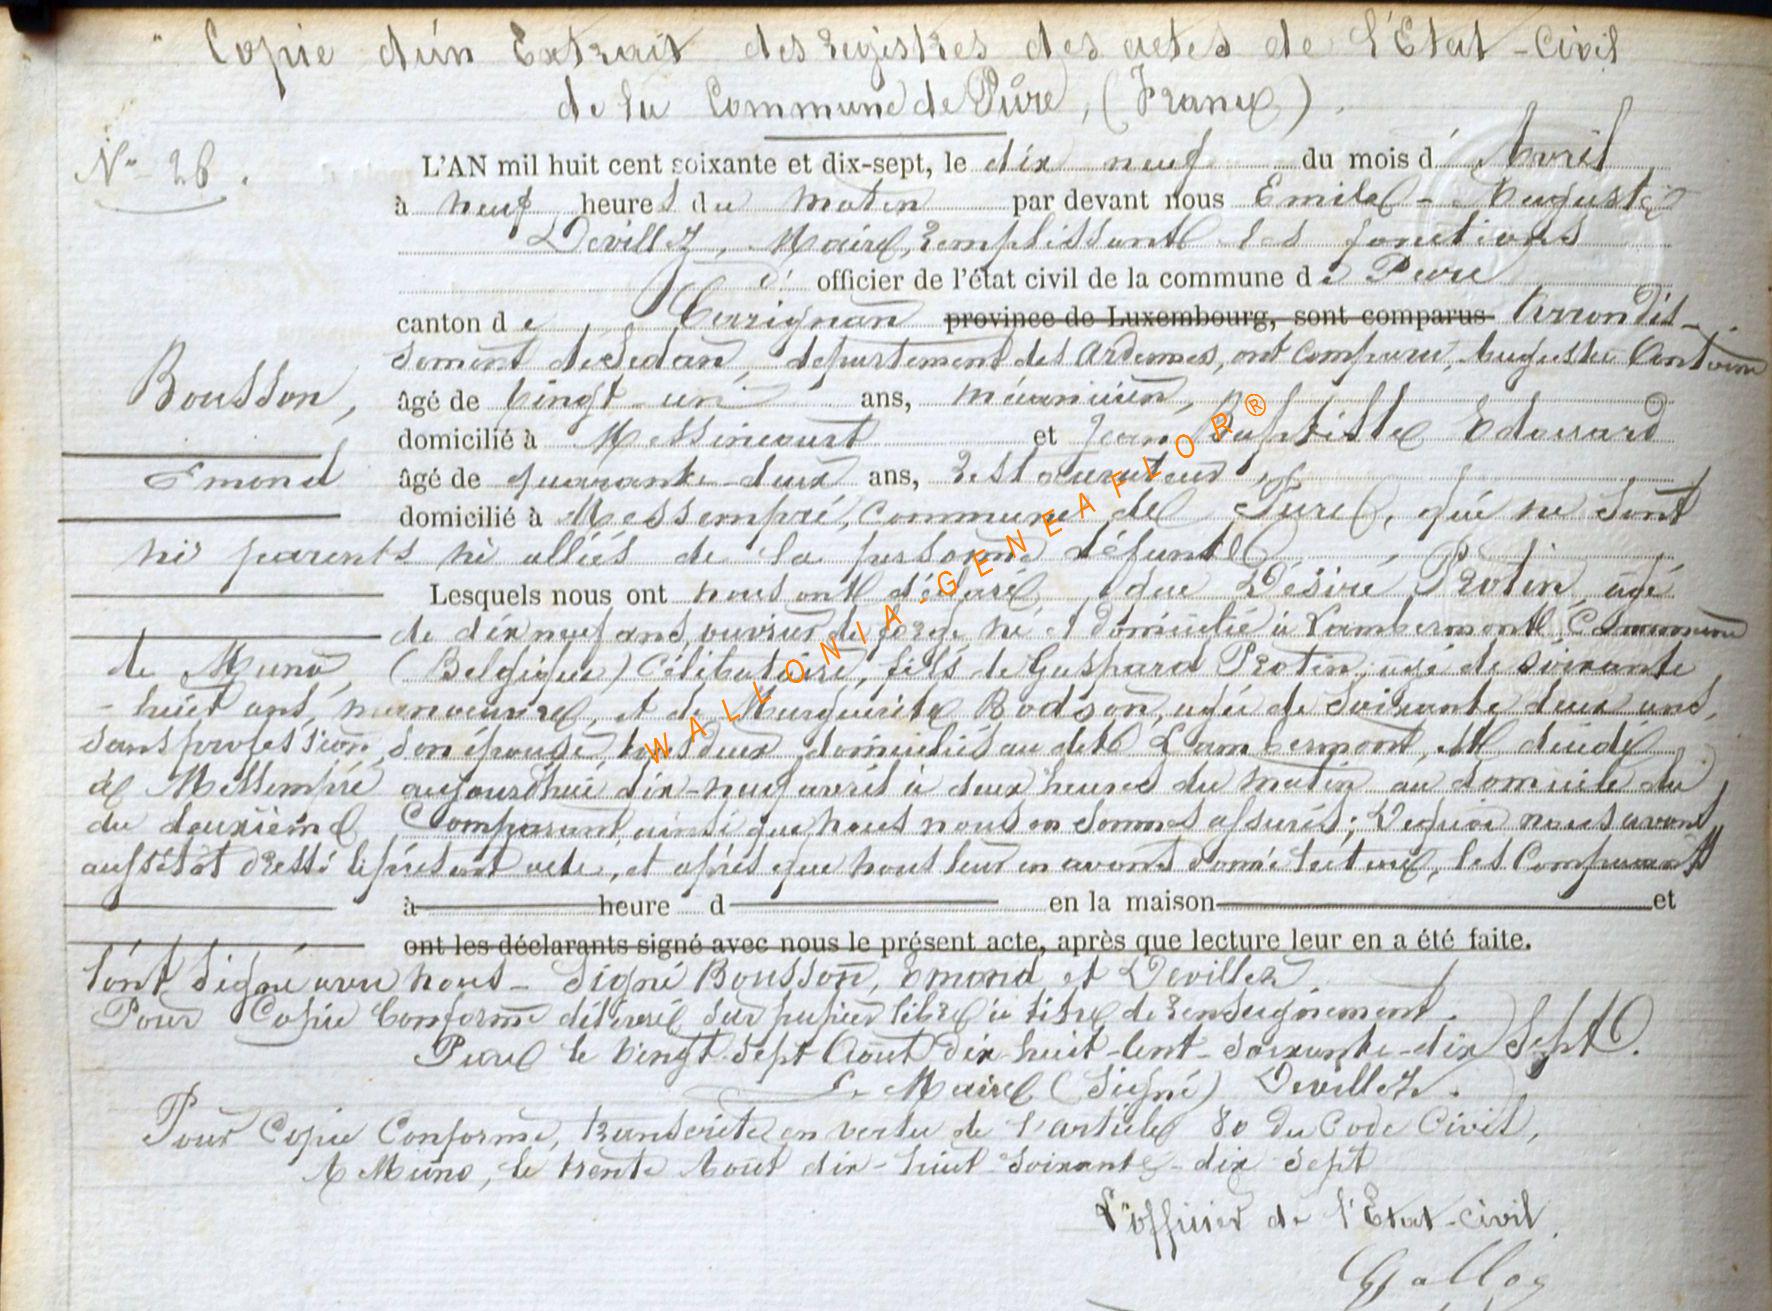 Copie d'un Extrait des registres des actes de l'Etat-Civil
de la Commune de Pure, (France).
No 26.
L'AN mil huit cent soixante et dix-sept, le dix neuf du mois d' Avril
à neuf heures du matin par devant nous Emile - Auguste
Devillez, Maire, remplissant les fonctions
d' officier de l'état civil de la commune de Pure
canton de Carignan province de Luxembourg, sont comparus Arrondis-
sement de Sedan, département des Ardennes, ont comparu, Auguste Antoine
Bousson, âgé de vingt-un ans, mécanicien,
domicilié à Messincourt et Jean Baptiste Edouard
Emond âgé de quarante-deux ans, restaurateur,
domicilié à Messempré, commune de Pure, qui ne sont
ni parents ni alliés de la personne défunte
Lesquels nous ont nous ont déclaré que Désiré Protin, âgé
de dix neuf ans, ouvrier de forge, né et domicilié à Lambermont, Commune
de Muno, (Belgique) Célibataire, fils de Gaspard Protin, âgé de soixante
-huit ans, manoeuvre, et de Marguerite Bodson, âgée de soixante deux ans,
sans profession, son épouse, tous deux domiciliés au dit Lambermont, est décédé
à Messempré aujourd'hui dix-neuf avril à deux heures du matin au domicile du
du deuxième Comparant, ainsi que nous nous en sommes assurés; De quoi nous avons
aussitôt dressé le présent acte, et après que nous leur en avons donné lecture, les Comparants
à heure d en la maison et
ont les déclarants signé avec nous le présent acte, après que lecture leur en a été faite.
l'ont signé avec nous - Signé Bousson, Emond et Devillez.
Pour Copie Conforme délivrée sur papier libre à titre de renseignement.
Pure le vingt-sept Août dix-huit-cent-soixante-dix Sept.
Le Maire (Signé) Devillez.
Pour Copie Conforme, transcrite en vertu de l'article 80 du Code Civil,
A Muno, le trente Août dix-huit-soixante-dix sept
L'officier de l'Etat-civil.
WALLONIA-GENEAFLOR®